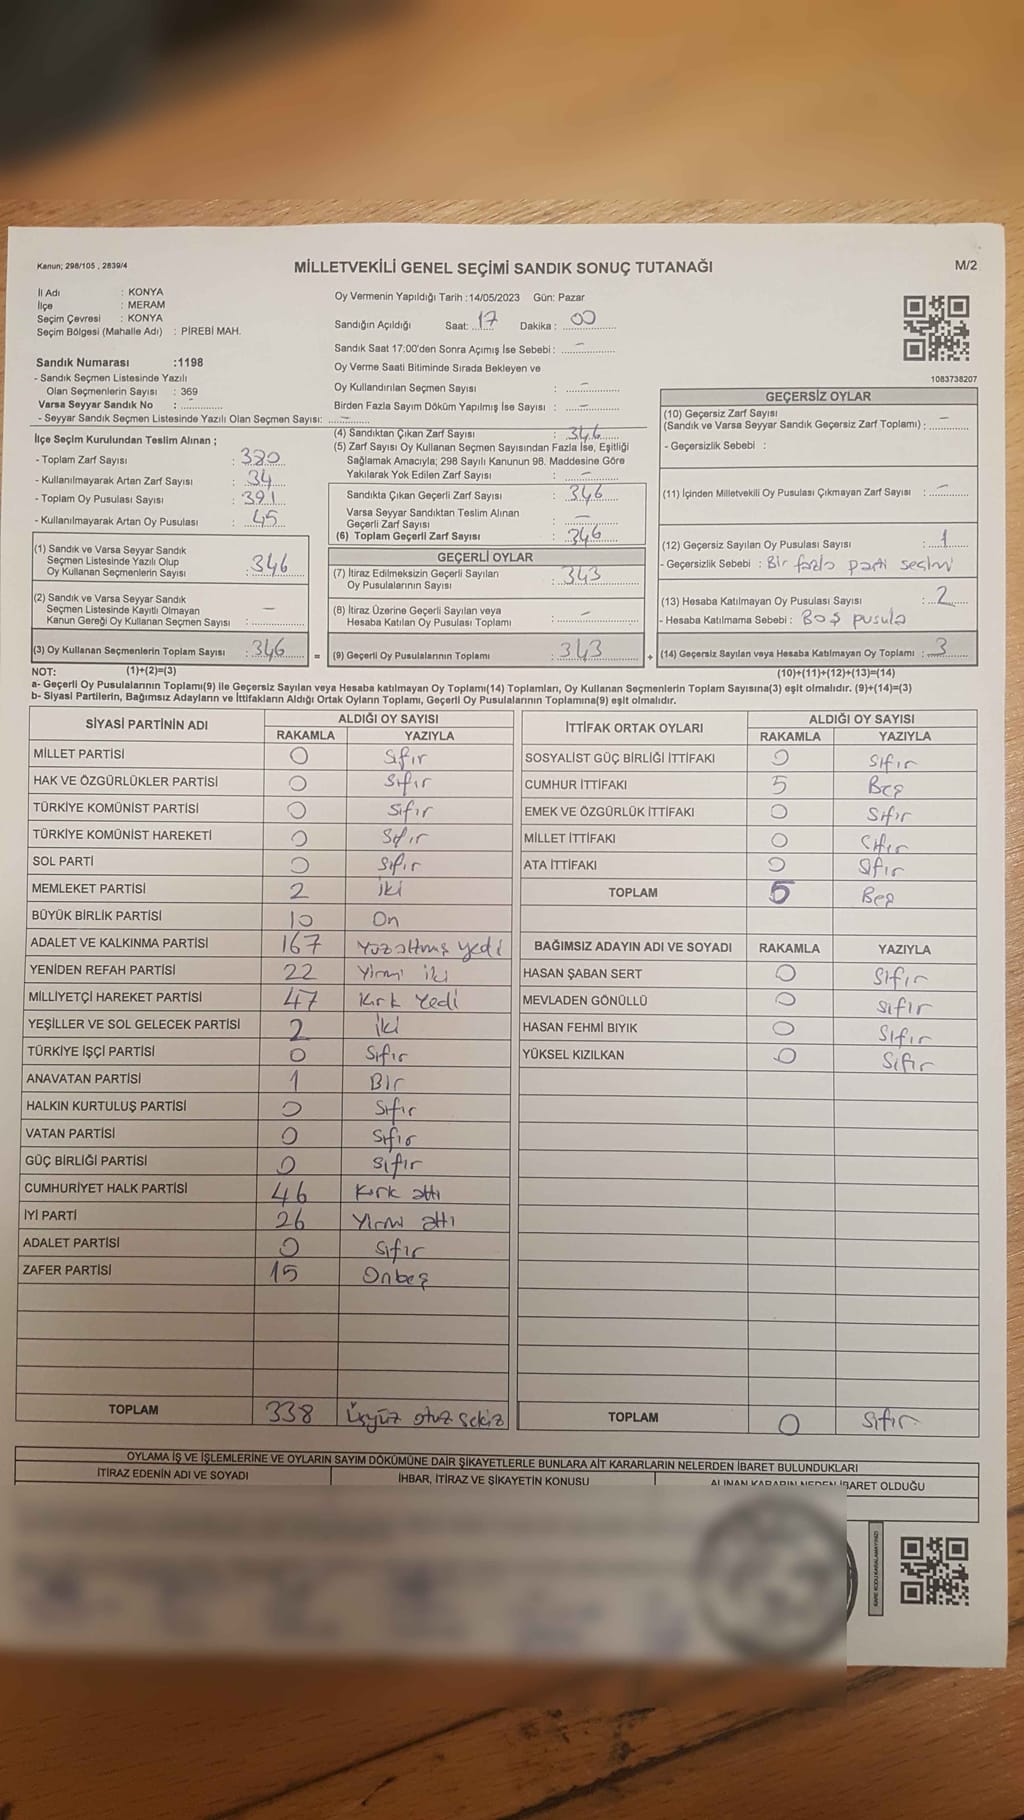 Kanun; 298/105 , 2839/4
MİLLETVEKİLİ GENEL SEÇİMİ SANDIK SONUÇ TUTANAĞI
M/2
İl Adı : KONYA
İlçe : MERAM
Seçim Çevresi : KONYA
Seçim Bölgesi (Mahalle Adı) : PİREBİ MAH.
Sandık Numarası :1198
- Sandık Seçmen Listesinde Yazılı
Olan Seçmenlerin Sayısı : 369
Varsa Seyyar Sandık No : ..............
- Seyyar Sandık Seçmen Listesinde Yazılı Olan Seçmen Sayısı: –
İlçe Seçim Kurulundan Teslim Alınan ;
- Toplam Zarf Sayısı : 380
- Kullanılmayarak Artan Zarf Sayısı : 34
- Toplam Oy Pusulası Sayısı : 391
- Kullanılmayarak Artan Oy Pusulası : 45
(1) Sandık ve Varsa Seyyar Sandık
Seçmen Listesinde Yazılı Olup
Oy Kullanan Seçmenlerin Sayısı : 346
(2) Sandık ve Varsa Seyyar Sandık
Seçmen Listesinde Kayıtlı Olmayan
Kanun Gereği Oy Kullanan Seçmen Sayısı : –
(3) Oy Kullanan Seçmenlerin Toplam Sayısı : 346
Oy Vermenin Yapıldığı Tarih :14/05/2023 Gün: Pazar
Sandığın Açıldığı Saat: 17 Dakika : 00
Sandık Saat 17:00'den Sonra Açımış İse Sebebi : –
Oy Verme Saati Bitiminde Sırada Bekleyen ve
Oy Kullandırılan Seçmen Sayısı : –
Birden Fazla Sayım Döküm Yapılmış İse Sayısı : –
(4) Sandıktan Çıkan Zarf Sayısı : 346
(5) Zarf Sayısı Oy Kullanan Seçmen Sayısından Fazla İse, Eşitliği
Sağlamak Amacıyla; 298 Sayılı Kanunun 98. Maddesine Göre
Yakılarak Yok Edilen Zarf Sayısı : –
Sandıkta Çıkan Geçerli Zarf Sayısı : 346
Varsa Seyyar Sandıktan Teslim Alınan
Geçerli Zarf Sayısı : –
(6) Toplam Geçerli Zarf Sayısı : 346
GEÇERLİ OYLAR
(7) İtiraz Edilmeksizin Geçerli Sayılan
Oy Pusulalarının Sayısı : 343
(8) İtiraz Üzerine Geçerli Sayılan veya
Hesaba Katılan Oy Pusulası Toplamı : –
= (9) Geçerli Oy Pusulalarının Toplamı : 343
1083738207
GEÇERSİZ OYLAR
(10) Geçersiz Zarf Sayısı
(Sandık ve Varsa Seyyar Sandık Geçersiz Zarf Toplamı) : –
- Geçersizlik Sebebi :
(11) İçinden Milletvekili Oy Pusulası Çıkmayan Zarf Sayısı : –
(12) Geçersiz Sayılan Oy Pusulası Sayısı : 1
- Geçersizlik Sebebi : Bir fazla parti seçimi
(13) Hesaba Katılmayan Oy Pusulası Sayısı : 2
- Hesaba Katılmama Sebebi : Boş pusula
+ (14) Geçersiz Sayılan veya Hesaba Katılmayan Oy Toplamı : 3
NOT: (1)+(2)=(3) (10)+(11)+(12)+(13)=(14)
a- Geçerli Oy Pusulalarının Toplamı(9) ile Geçersiz Sayılan veya Hesaba katılmayan Oy Toplamı(14) Toplamları, Oy Kullanan Seçmenlerin Toplam Sayısına(3) eşit olmalıdır. (9)+(14)=(3)
b- Siyasi Partilerin, Bağımsız Adayların ve İttifakların Aldığı Ortak Oyların Toplamı, Geçerli Oy Pusulalarının Toplamına(9) eşit olmalıdır.
SİYASİ PARTİNİN ADI ALDIĞI OY SAYISI
RAKAMLA YAZIYLA
MİLLET PARTİSİ 0 Sıfır
HAK VE ÖZGÜRLÜKLER PARTİSİ 0 Sıfır
TÜRKİYE KOMÜNİST PARTİSİ 0 Sıfır
TÜRKİYE KOMÜNİST HAREKETİ 0 Sıfır
SOL PARTİ 0 Sıfır
MEMLEKET PARTİSİ 2 İki
BÜYÜK BİRLİK PARTİSİ 10 On
ADALET VE KALKINMA PARTİSİ 167 Yüzaltmış yedi
YENİDEN REFAH PARTİSİ 22 Yirmi iki
MİLLİYETÇİ HAREKET PARTİSİ 47 Kırk Yedi
YEŞİLLER VE SOL GELECEK PARTİSİ 2 İki
TÜRKİYE İŞÇİ PARTİSİ 0 Sıfır
ANAVATAN PARTİSİ 1 Bir
HALKIN KURTULUŞ PARTİSİ 0 Sıfır
VATAN PARTİSİ 0 Sıfır
GÜÇ BİRLİĞİ PARTİSİ 0 Sıfır
CUMHURİYET HALK PARTİSİ 46 Kırk altı
İYİ PARTİ 26 Yirmi altı
ADALET PARTİSİ 0 Sıfır
ZAFER PARTİSİ 15 Onbeş
TOPLAM 338 Üçyüz otuz sekiz
İTTİFAK ORTAK OYLARI ALDIĞI OY SAYISI
RAKAMLA YAZIYLA
SOSYALİST GÜÇ BİRLİĞİ İTTİFAKI 0 Sıfır
CUMHUR İTTİFAKI 5 Beş
EMEK VE ÖZGÜRLÜK İTTİFAKI 0 Sıfır
MİLLET İTTİFAKI 0 Sıfır
ATA İTTİFAKI 0 Sıfır
TOPLAM 5 Beş
BAĞIMSIZ ADAYIN ADI VE SOYADI RAKAMLA YAZIYLA
HASAN ŞABAN SERT 0 Sıfır
MEVLADEN GÖNÜLLÜ 0 Sıfır
HASAN FEHMİ BIYIK 0 Sıfır
YÜKSEL KIZILKAN 0 Sıfır
TOPLAM 0 Sıfır
OYLAMA İŞ VE İŞLEMLERİNE VE OYLARIN SAYIM DÖKÜMÜNE DAİR ŞİKAYETLERLE BUNLARA AİT KARARLARIN NELERDEN İBARET BULUNDUKLARI
İTİRAZ EDENİN ADI VE SOYADI İHBAR, İTİRAZ VE ŞİKAYETİN KONUSU ALINAN KARARIN NEDEN İBARET OLDUĞU